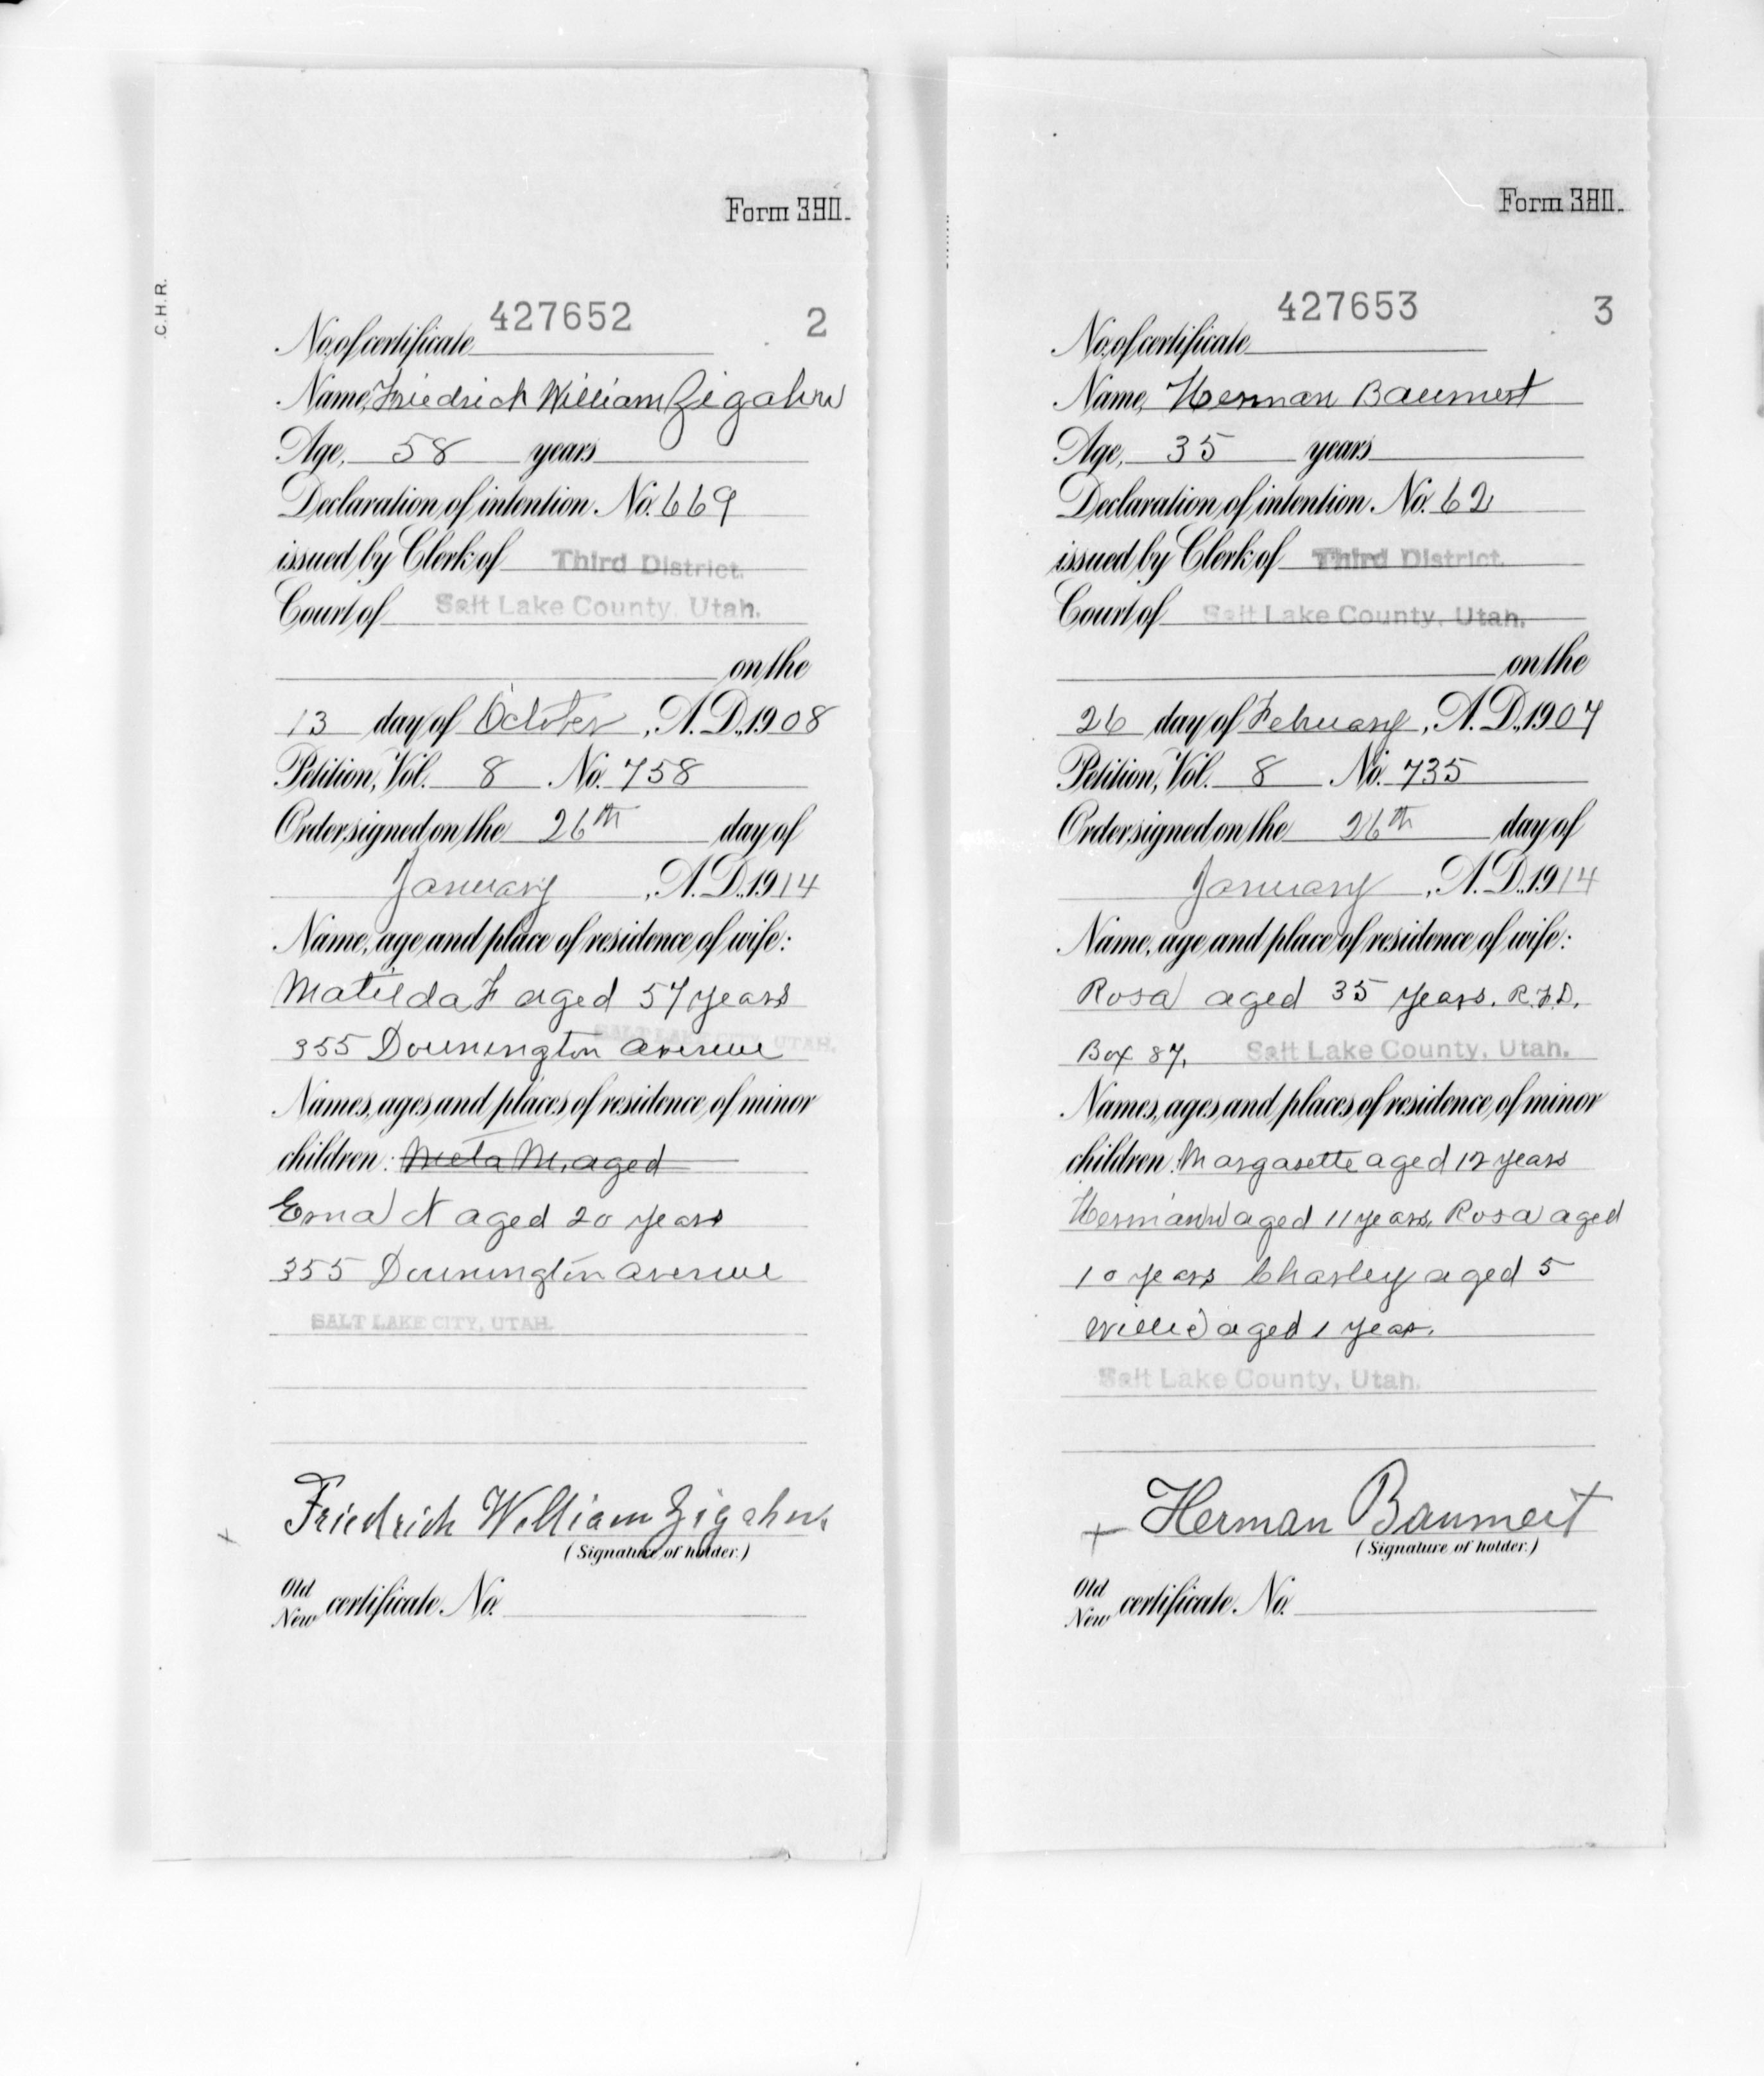 Form 380.
C.H.R.
427652 2
No. of certificate
Name, Friedrich William Zigahn
Age, 58 years
Declaration of intention, No. 669
issued by Clerk of Third District.
Court of Salt Lake County, Utah.
on the
13 day of October, A.D., 1908
Petition, Vol. 8 No. 758
Order signed on the 26th day of
January, A.D., 1914
Name, age and place of residence of wife:
Matilda F aged 57 years
SALT LAKE CITY, UTAH.
355 Dounington avenue
Names, ages and places of residence of minor
children: Meta M, aged
Erna A aged 20 years
355 Dounington avenue
SALT LAKE CITY, UTAH.
Friedrich William Zigahn
(Signature of holder.)
Old
New certificate, No.
Form 380.
427653 3
No. of certificate
Name, Herman Baumert
Age, 35 years
Declaration of intention, No. 62
issued by Clerk of Third District.
Court of Salt Lake County, Utah.
on the
26 day of February, A.D., 1907
Petition, Vol. 8 No. 735
Order signed on the 26th day of
January, A.D., 1914
Name, age and place of residence of wife:
Rosa aged 35 years. R.F.D.
Box 87, Salt Lake County, Utah.
Names, ages and places of residence of minor
children: Margarette aged 12 years
Hermann aged 11 years, Rosa aged
10 years Charley aged 5
Willie aged 1 year.
Salt Lake County, Utah.
Herman Baumert
(Signature of holder.)
Old
New certificate, No.